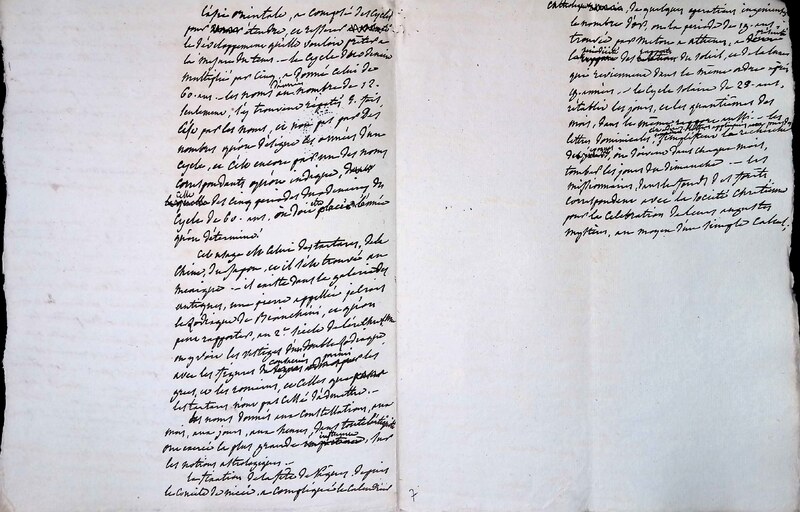 l'asie orientale, a Composé des Cycles
pour étendre, et
le développement qu'elle vouloit prêter a
la mesure du tems. — le Cycle duodenaire
multiplié par Cinq, a donné Celui de
60. ans. — les noms au nombre de 12.
seulement, s'y trouvent répétés 5. fois,
C'est par les noms, et non pas par des
nombres qu'on désigne les années d'un
Cycle, et C'est encore par un des noms
correspondants qu'on indique,
celle des Cinq périodes duodenaires du
Cycle de 60. ans, où doit être placée l'année
qu'on détermine.
Cet usage est Celui des tartares, de la
Chine, du Japon, et il s'est trouvé au
mexique. — il existe dans la galerie des
antiques, une pierre appellée
le Zodiaque de Bianchini, et qu'on
peut rapporter, au 2e siècle de l'ère
on y voit les vestiges d'un double Zodiaque
avec les figures les
grecs, et les romains, et Celles que
les tartares n'ont pas Cessé d'admettre. —
les noms donnés aux Constellations, aux
mois, aux jours, aux heures, dans toute l'antiquité
ont exercé la plus grande influence, sur
les notions astrologiques. —
la fixation de la fête de Pâques depuis
le Concile de nicée, a Compliqué le Calendrier
7
catholique, de quelques opérations ingénieuses
le nombre d'or, ou la période de 19. ans,
trouvée par Meton a athenes, a
la du soleil, et de la lune
qui reviennent dans le même ordre après
19. années. — le Cycle solaire de 28. ans,
rétablit les jours, et les quantièmes des
mois, dans le même aussi. — les
lettres dominicales, la recherche
des jours, où doivent dans chaque mois,
tomber les jours du dimanche. — les
missionnaires, dans le fonds des forêts
correspondent avec la société Chrétienne
pour la Célébration de leurs augustes
mystères, au moyen d'un simple Calcul.